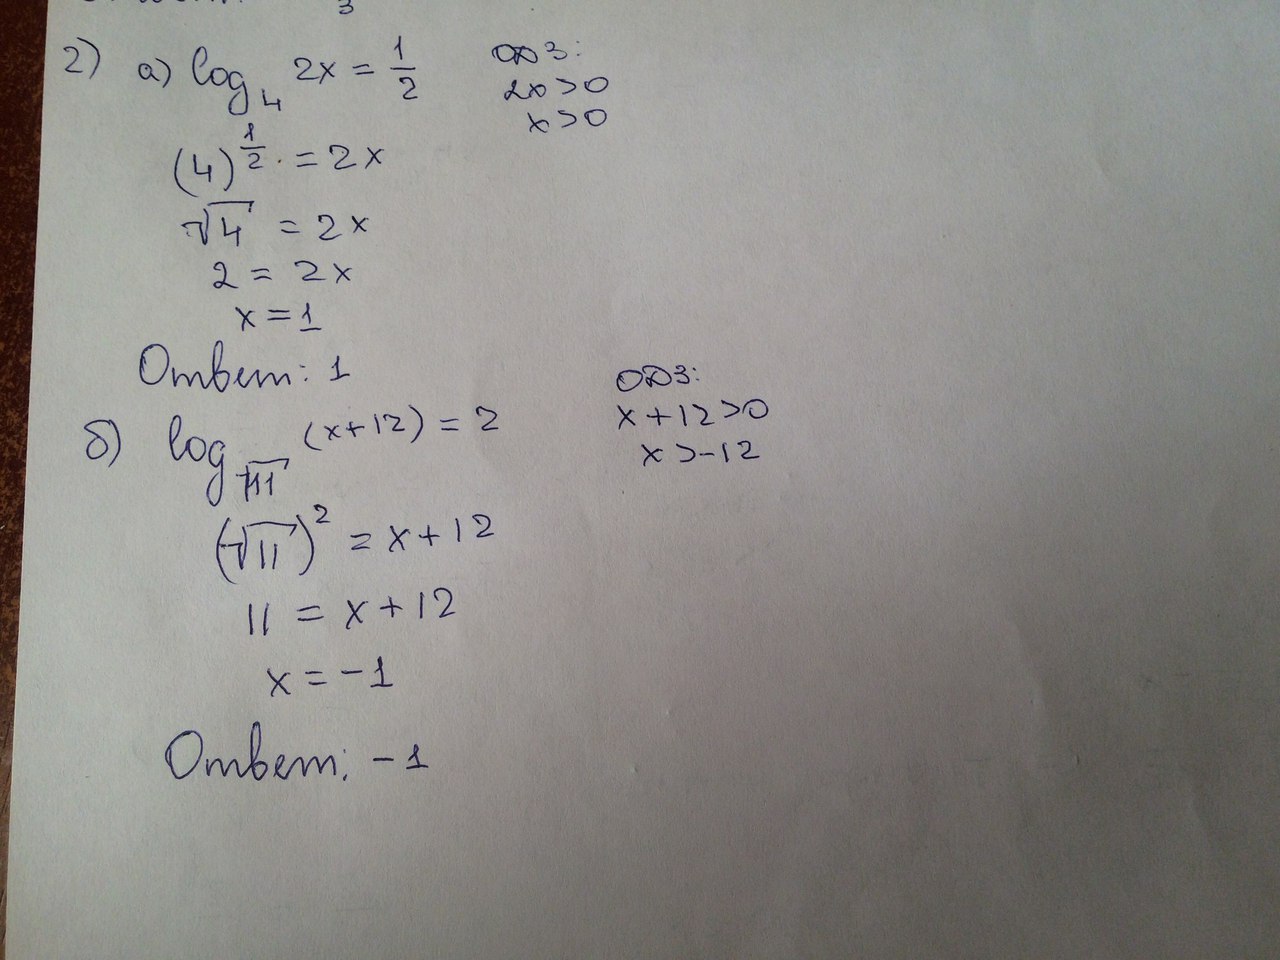 3
2) а) log₄ 2x = 1/2
ОДЗ:
2x>0
x>0
(4)^(1/2) = 2x
√4 = 2x
2 = 2x
x = 1
Ответ: 1
б) log_√11 (x+12) = 2
ОДЗ:
x+12>0
x>-12
(√11)² = x+12
11 = x+12
x = -1
Ответ: -1